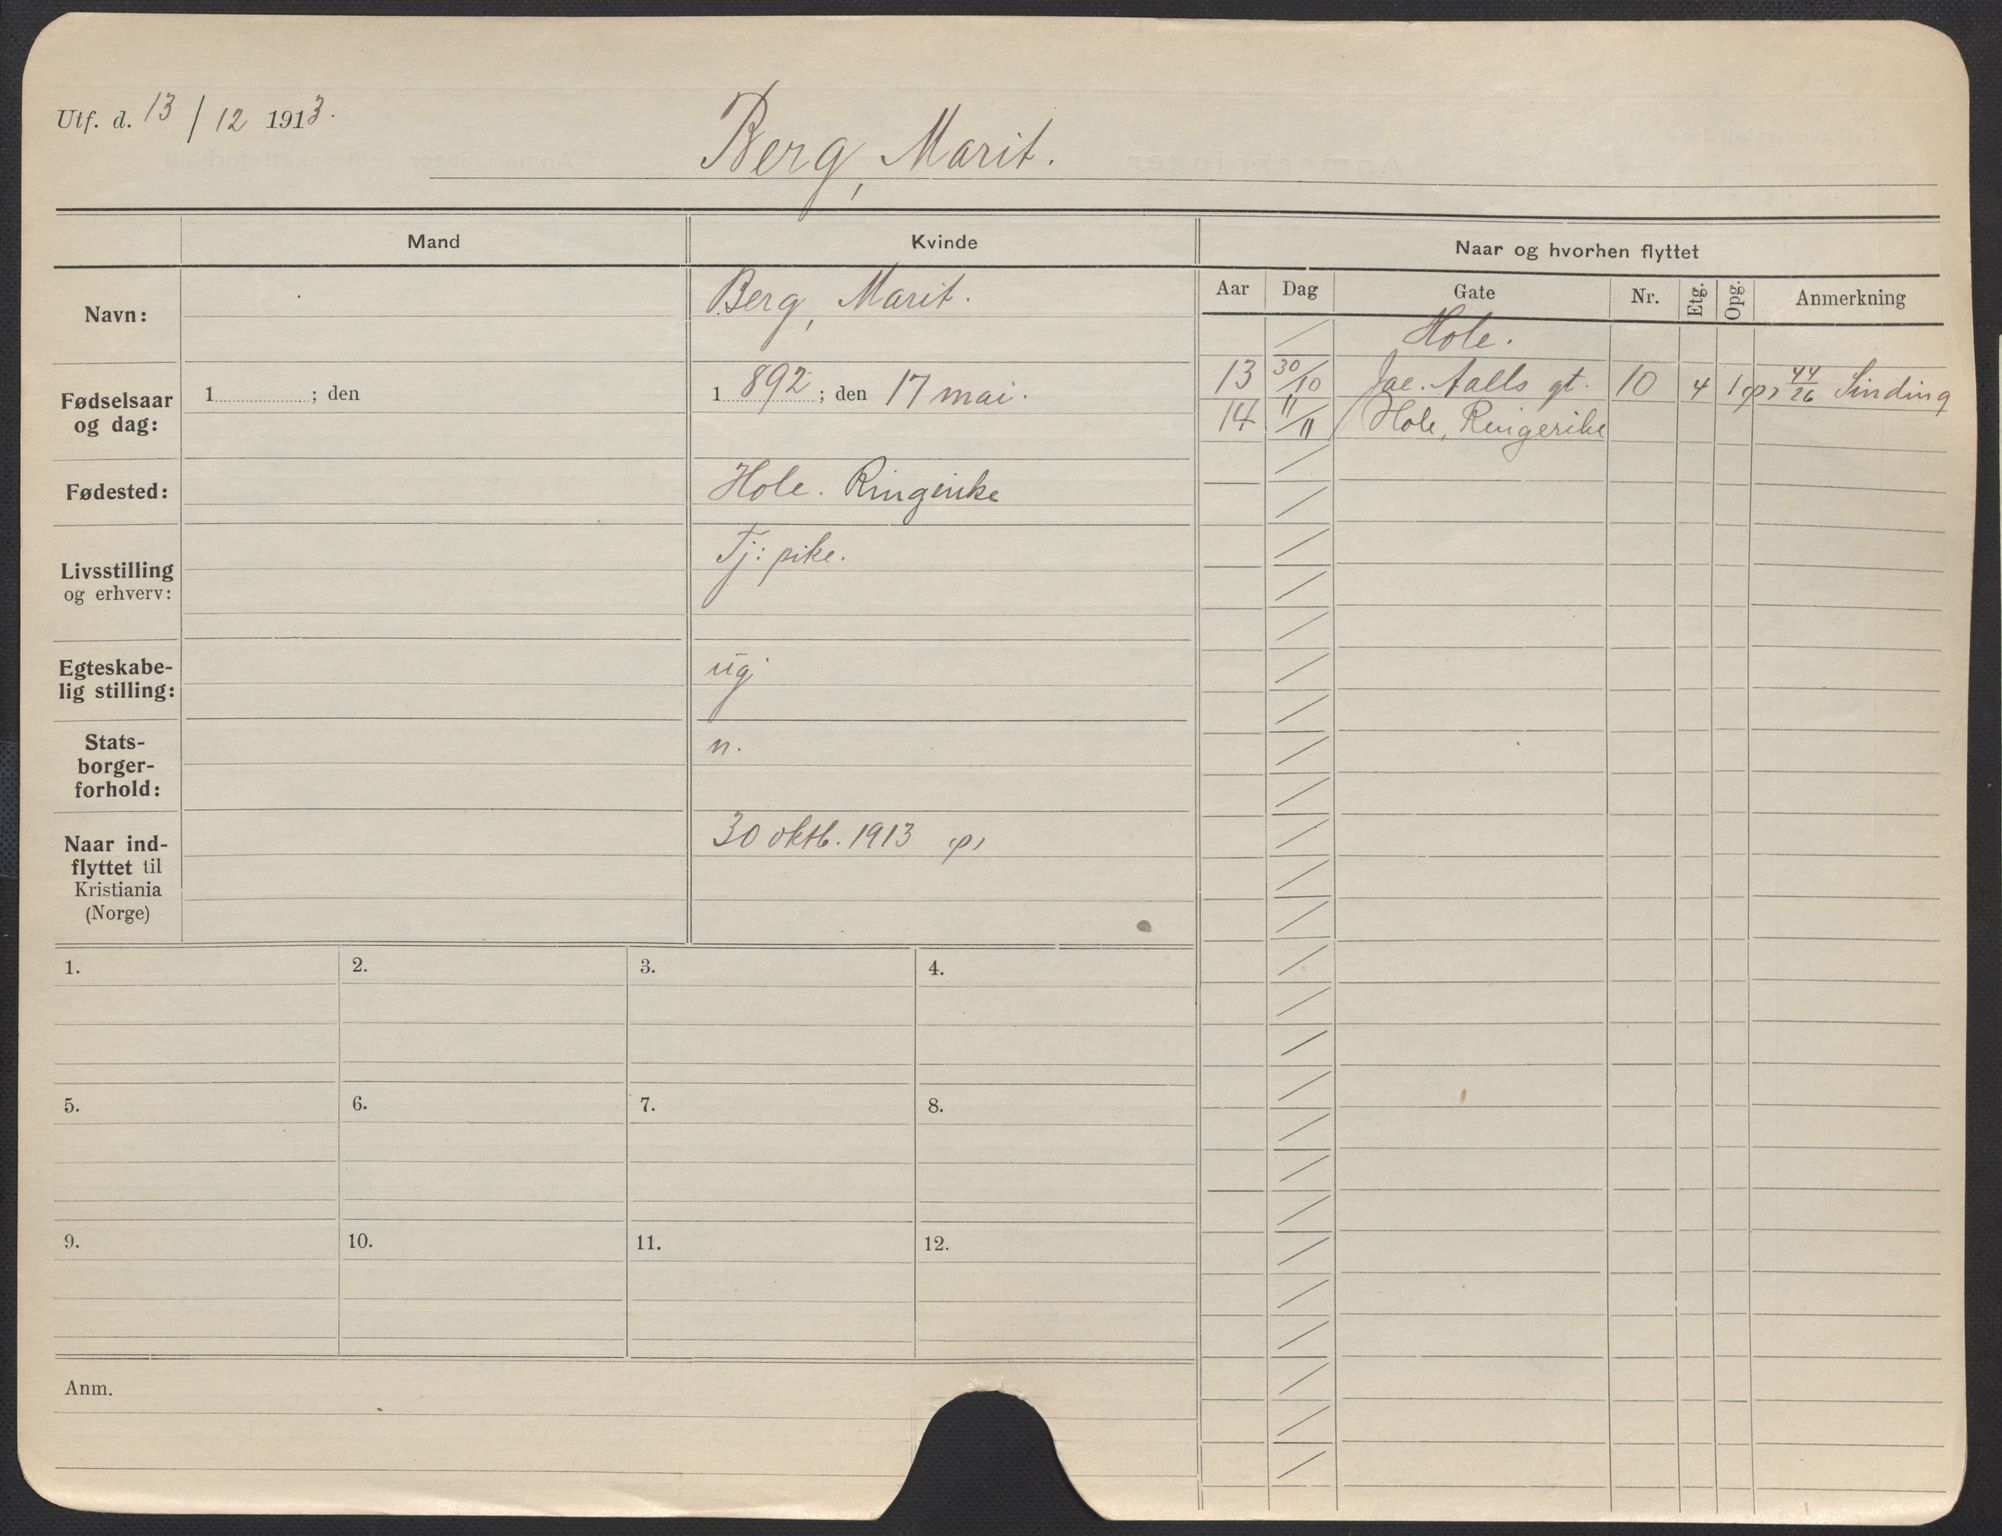 Utf. d. 13/12 1913.
Berg, Marit.
Mand
Kvinde
Naar og hvorhen flyttet
Navn:
Berg, Marit.
Fødselsaar og dag:
1 ; den
1 892 ; den 17 mai.
Fødested:
Hole. Ringerike
Livsstilling og erhverv:
Tj: pike.
Egteskabe-
lig stilling:
ug
Stats-
borger-
forhold:
n.
Naar ind-
flyttet til
Kristiania
(Norge)
30 oktb. 1913
Aar Dag Gate Nr. Etg. Opg. Anmerkning
Hole.
13 30/10 Jac. Aalls gt. 10 4 1 44/26 Sinding
14 11/11 Hole, Ringerike
1. 2. 3. 4.
5. 6. 7. 8.
9. 10. 11. 12.
Anm.